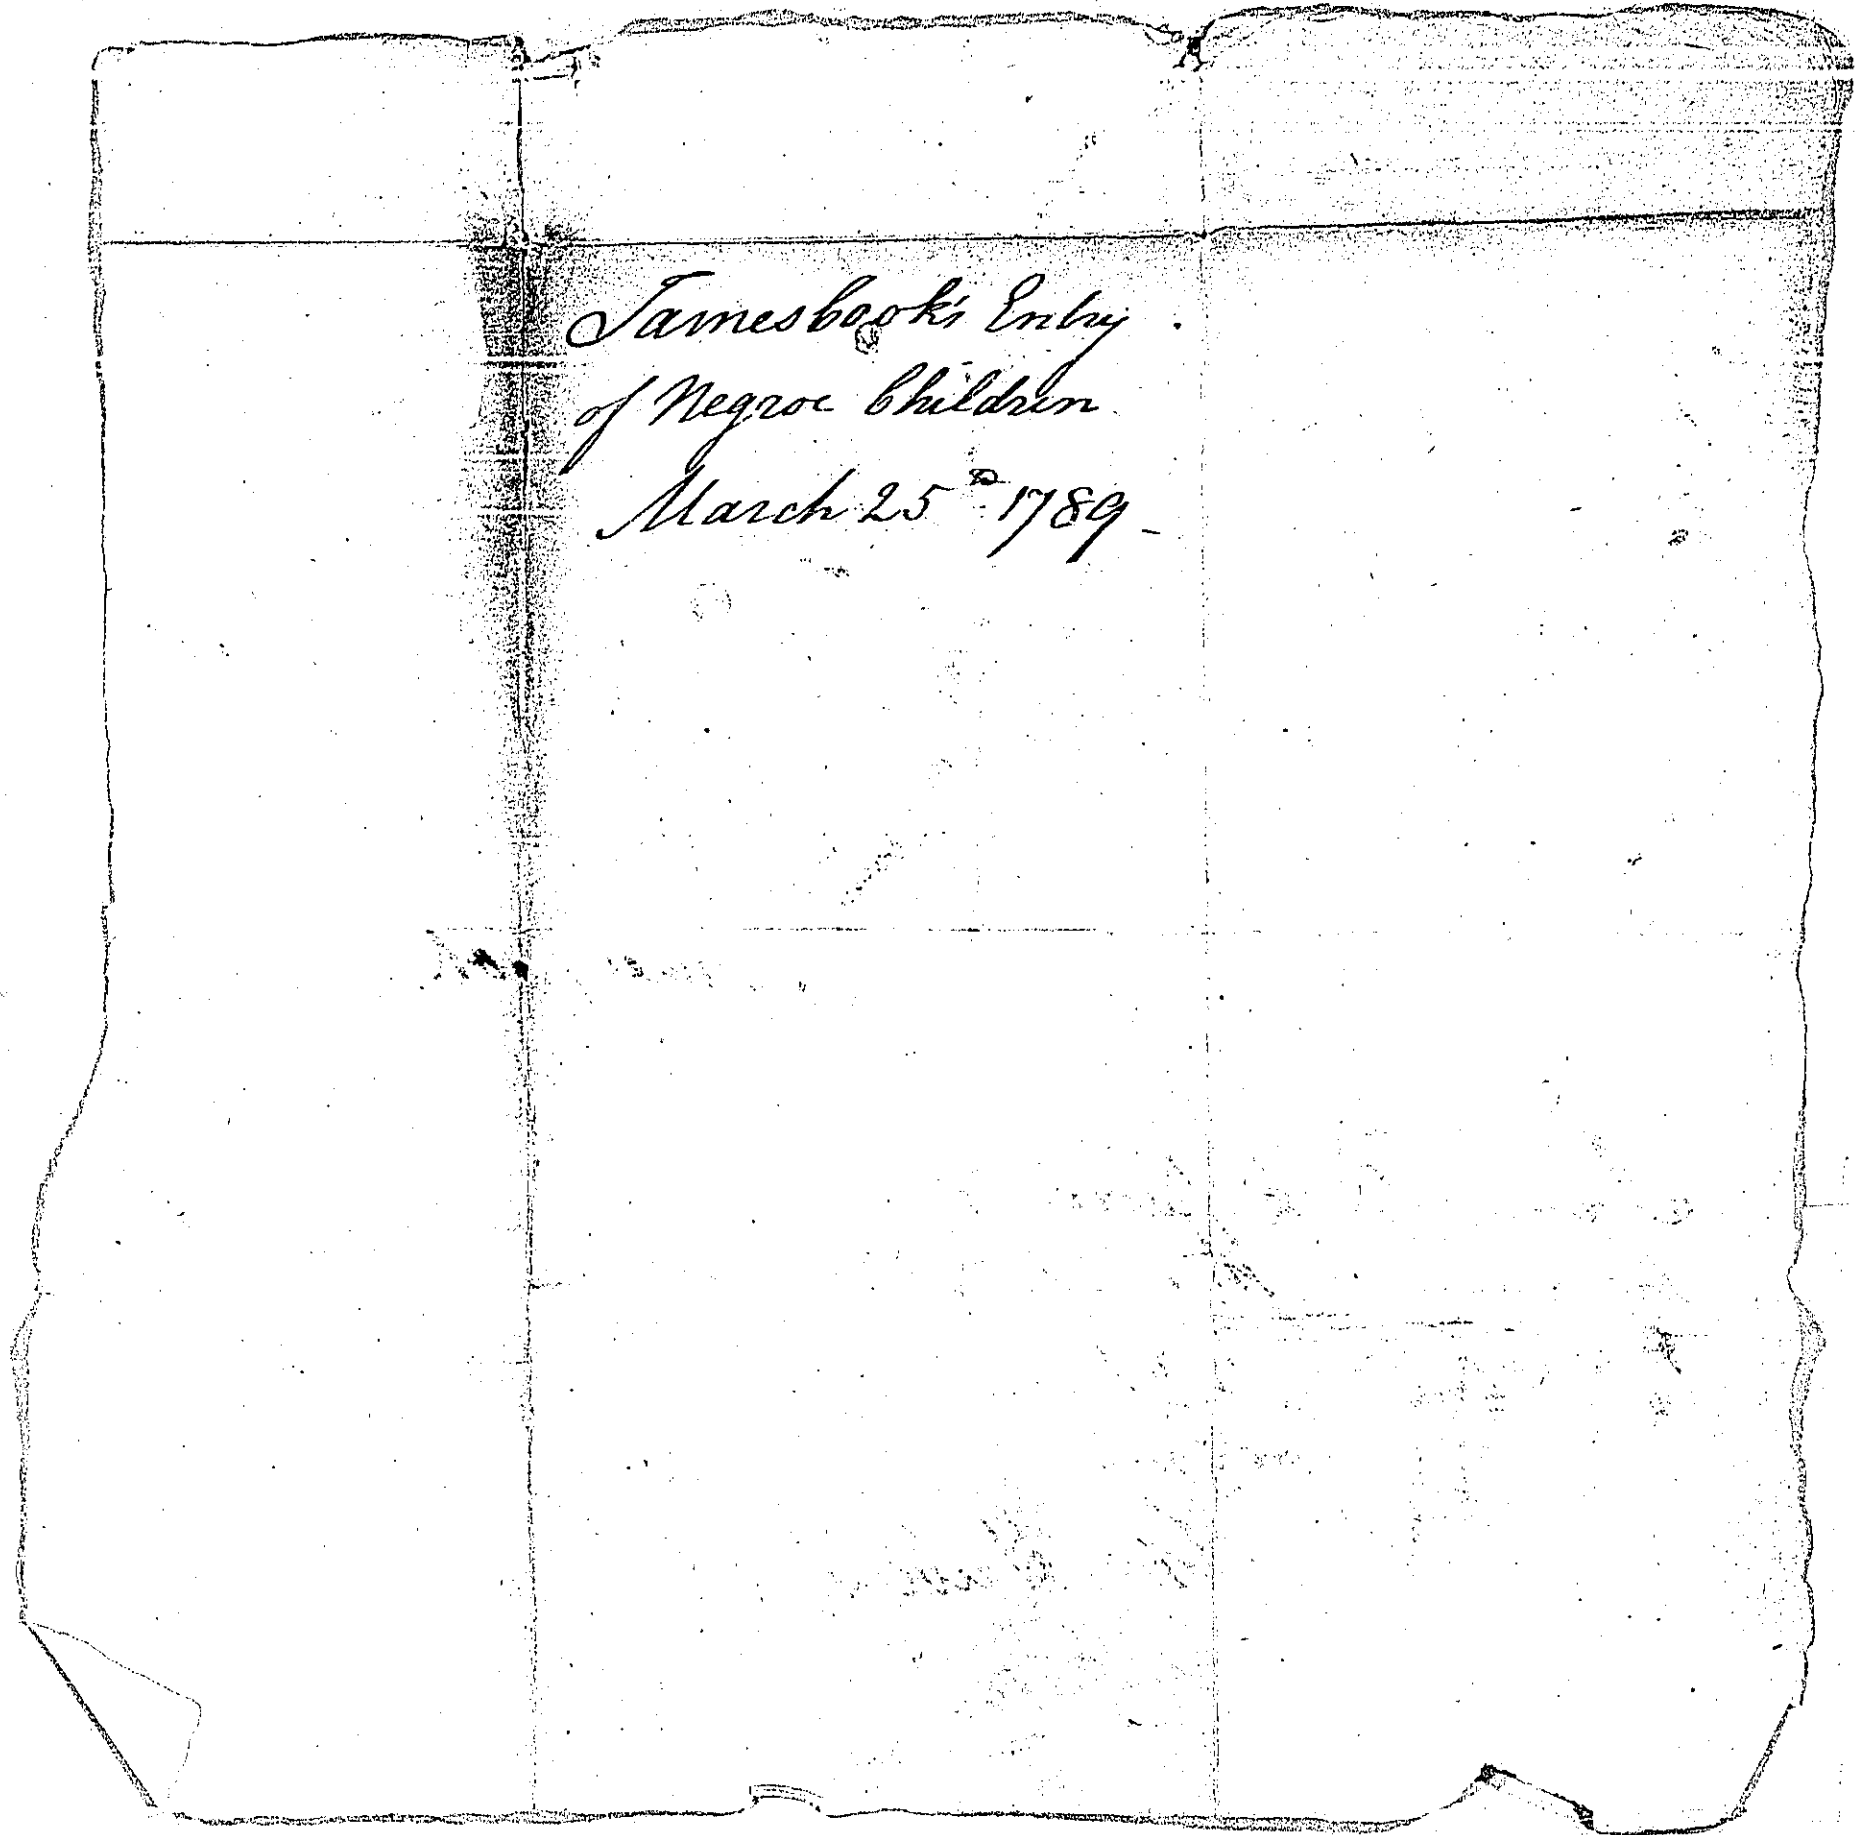 James Cook's Entry
of Negroe Children
March 25th 1789